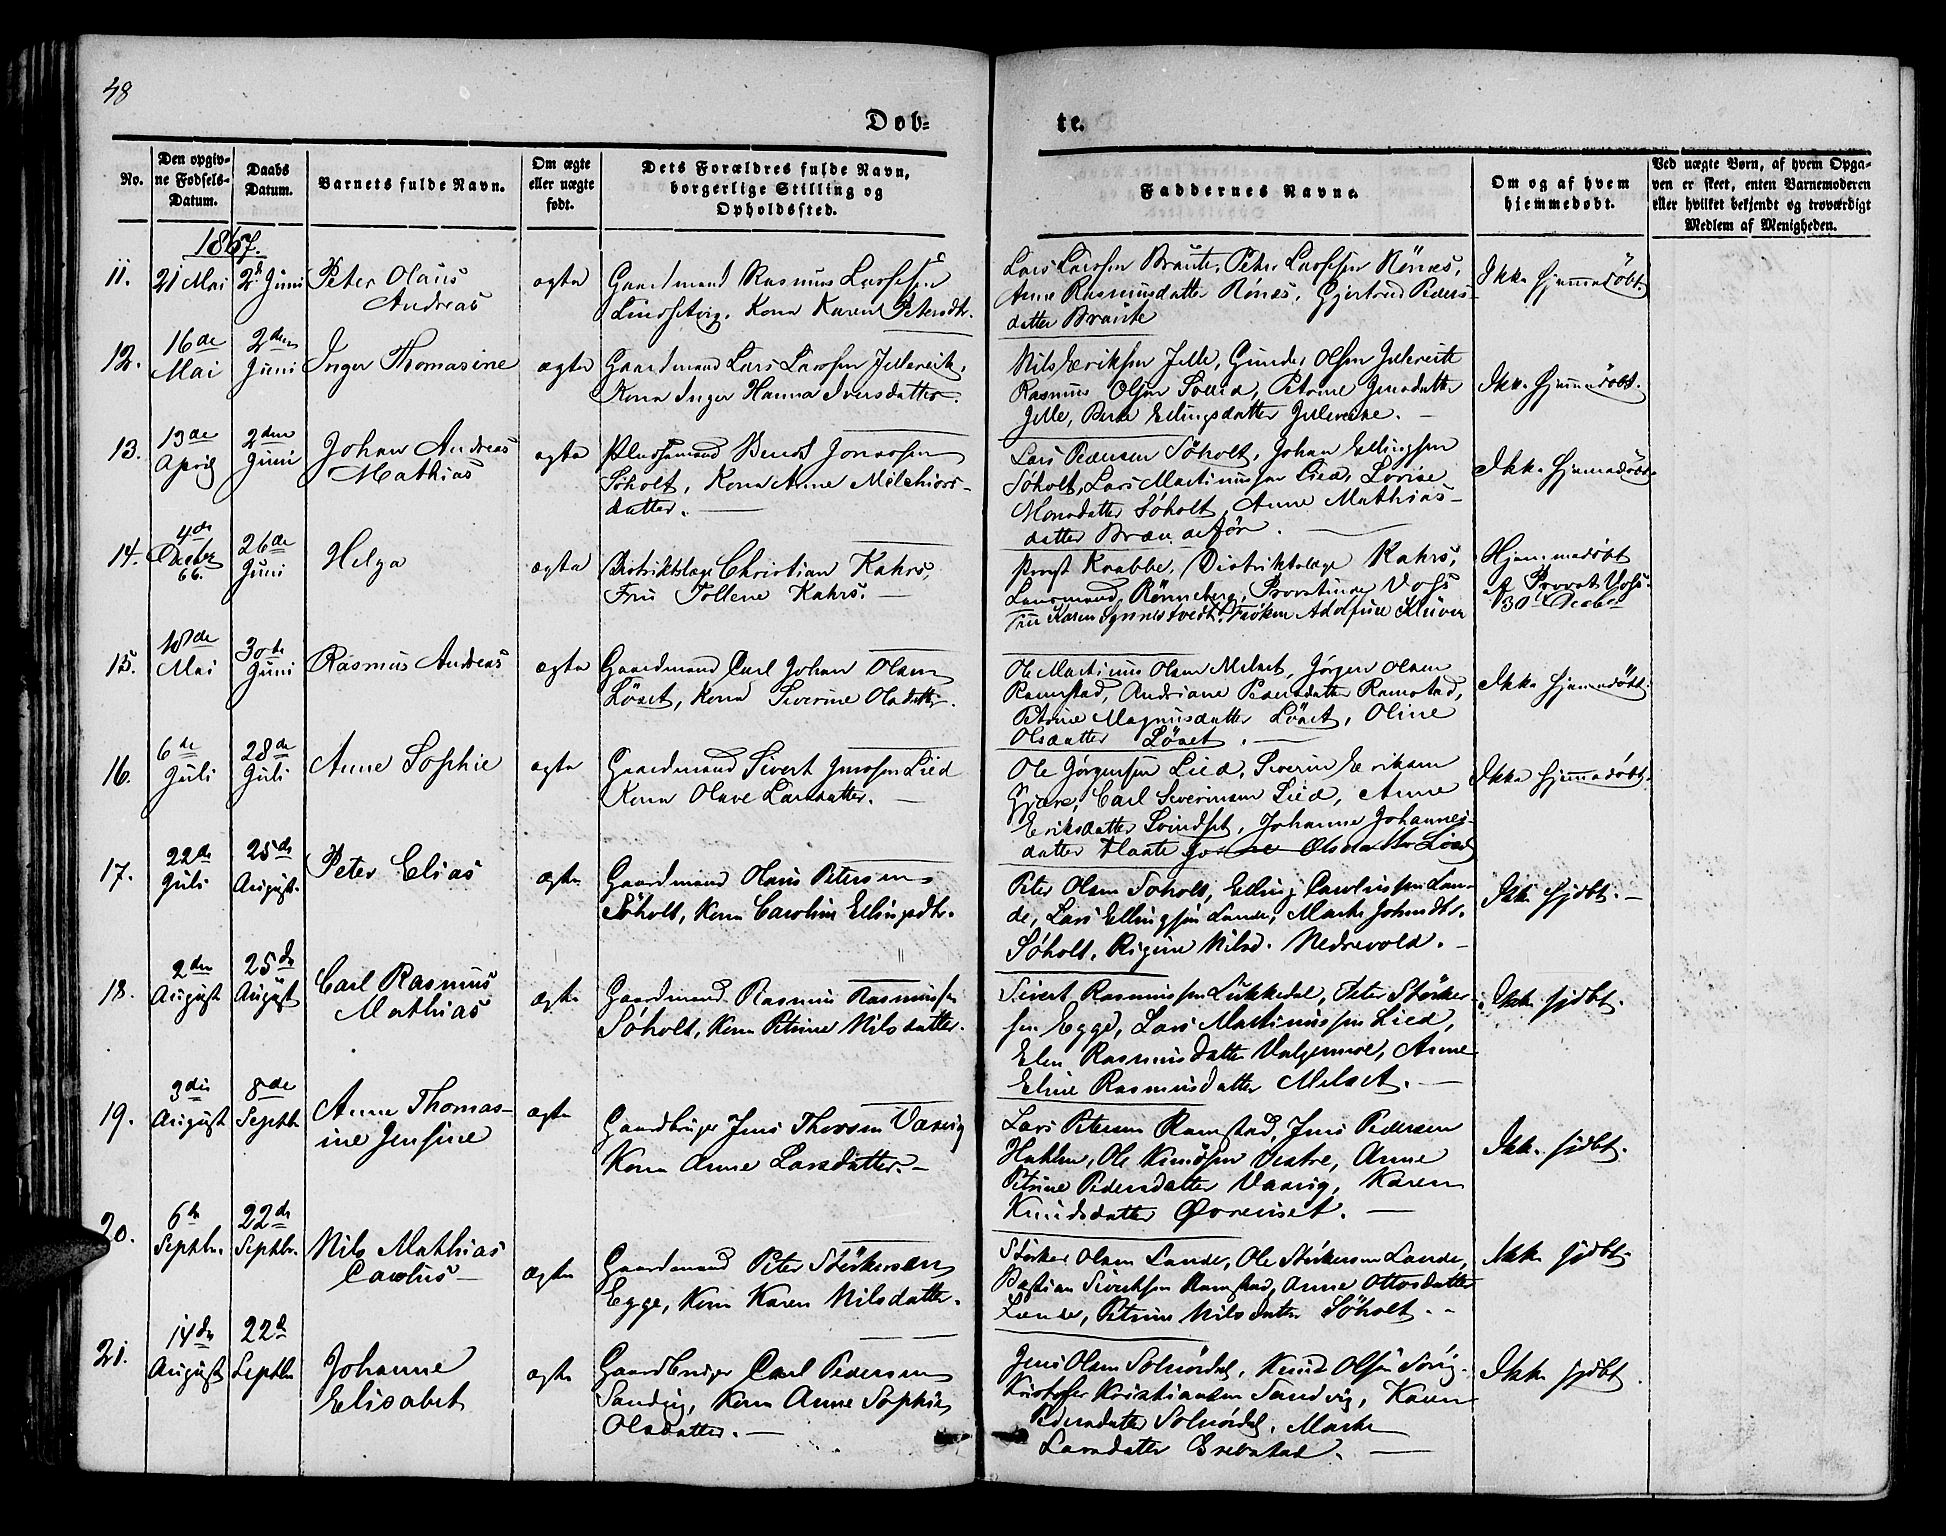 48
Døb-
te.
No.
Den opgiv-
ne Fødsels-
Datum.
Daabs
Datum.
Barnets fulde Navn.
Om ægte
eller uægte
født.
Dets Forældres fulde Navn,
borgerlige Stilling og
Opholdssted.
Faddernes Navne.
Om og af hvem
hjemmedøbt.
Ved uægte Børn, af hvem Opga-
ven er skeet, enten Barnemoderen
eller hvilket bekjendt og troværdigt
Medlem af Menigheden.
1867.
11.
21 Mai
2d Juni
Peter Olaus
Andreas
ægte
Gaardmand Rasmus Larssen
Lindsetvig, Kona Karen Petersdtr.
Lars Larssen Braute, Peter Larssen Rönæs,
Anne Rasmusdatter Rönæs, Gjertrud Peders-
datter Braute
Ikke hjemmedöbt.
12.
16de
Mai
2den
Juni
Inger Thomasine
ægte
Gaardmand Lars Larssen Jelleveit,
Kona Inger Hanna Iversdatter.
Nils Eriksen Jelle, Gunder Olsen Jelleveit
Rasmus Olsen Solli, Petrine Jensdatter
Jelle, Berte Ellingsdatter Jelleveit.
Ikke hjemmedöbt.
13.
13de
April
2den
Juni
Johan Andreas
Mathias
ægte
Pladsemand Berndt Jonassen
Söholt, Kona Anne Melchiors-
datter.
Lars Pedersen Söholt, Johan Ellingsen
Söholt, Lars Martinussen Lied, Lovise
Monsdatter Söholt, Anne Mathias-
datter
Ikke hjemmedöbt
14.
4de
Decbr
66.
26de
Juni
Helga
ægte
Distriktslæge Christian Kahrs,
Fru Tollene Kahrs.
Prost Krabbe, Distriktslæge Kahrs,
Lensmand Rönneberg, Provstinde Vogs
Fru Karen Synnestvedt, Fröken Adolfine Klüver
Hjemmedöbt
af Provst Vogs
30 Decbr
15.
18de
Mai
30te
Juni
Rasmus Andreas
ægte
Gaardmand Carl Johan Olsen
Löset, Kona Severine Olsdatter.
Ole Martinus Olsen Melset, Jörgen Olsen
Ramstad, Andriane Pedersdatter Ramstad,
Petrine Magnusdatter Löset, Oline
Olsdatter Löset.
Ikke hjemmedöbt.
16.
6de
Juli
28de
Juli
Anne Sophie
ægte
Gaardmand Sivert Jenssen Lied
Kona Olave Larsdatter.
Ole Jörgensen Lied, Severin Eriksen
Gjære, Carl Severinsen Lied, Anne
Eriksdatter Svindset, Johanne Johannes-
datter Flaate, Olsdatter Lied
Ikke hjemmedöbt.
17.
22de
Juli
25de
August.
Peter Elias
ægte
Gaardmand Olaus Petersen
Söholt, Kona Caroline Ellingsdtr.
Peter Olsen Söholt, Elling Carolussen Lan-
de, Lars Ellingsen Lande, Marte Johnsdtr.
Söholt, Rigine Nilsd. Nedrevold.
Ikke hjdbt.
18.
2den
August
25de
August
Carl Rasmus
Mathias
ægte
Gaardmand Rasmus Rasmussen
Söholt, Kona Petrine Nilsdatter.
Sivert Rasmussen Lükkedal, Peter Störker-
sen Egge, Lars Martinussen Lied,
Elen Rasmusdatter Valgermoe, Anne
Eline Rasmusdatter Melset.
Ikke hjdbt.
19.
3die
August
8de
Septbr.
Anne Thomas-
ine Jensine
ægte
Gaardbruger Jens Thorsen Vaarvig
Kona Anne Larsdatter.
Lars Petersen Ramstad, Jens Pedersen
Hahlen, Ole Knudsen Vestre, Anne
Petrine Pedersdatter Vaarvig, Karen
Knudsdatter Övreviset.
Ikke hjdbt.
20.
6te
Septbr.
22de
Septbr.
Nils Mathias
Carolus
ægte
Gaardmand Peter Störkersen
Egge, Kona Karen Nilsdatter.
Störker Olsen Lande, Ole Störkersen Lande,
Bastian Sivertsen Ramstad, Anne Ottosdatter
Lande, Petrine Nilsdatter Söholt.
Ikke hjdbt.
21.
14de
August
22d
Septbr
Johanne
Elisabet
ægte
Gaardbruger Carl Pedersen
Sandvig, Kona Anne Sophie
Olsdatter.
Jens Olsen Solnördal, Knud Olsen Sörvig,
Kristofer Kristiansen Sandvig, Karen
Pedersdatter Solnördal, Marte
Larsdatter Erebstad.
Ikke hjdbt.